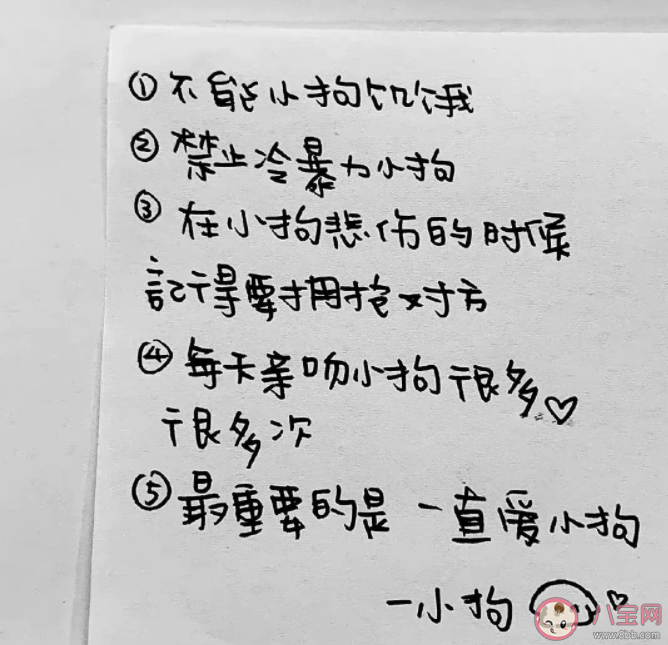 ① 不能小狗饥饿
② 禁止冷暴力小狗
③ 在小狗悲伤的时候
記得要拥抱对方
④ 每天亲吻小狗很多♡
很多次
⑤ 最重要的是 一直爱小狗
一小狗 ♡
八宝网
www.8bb.com